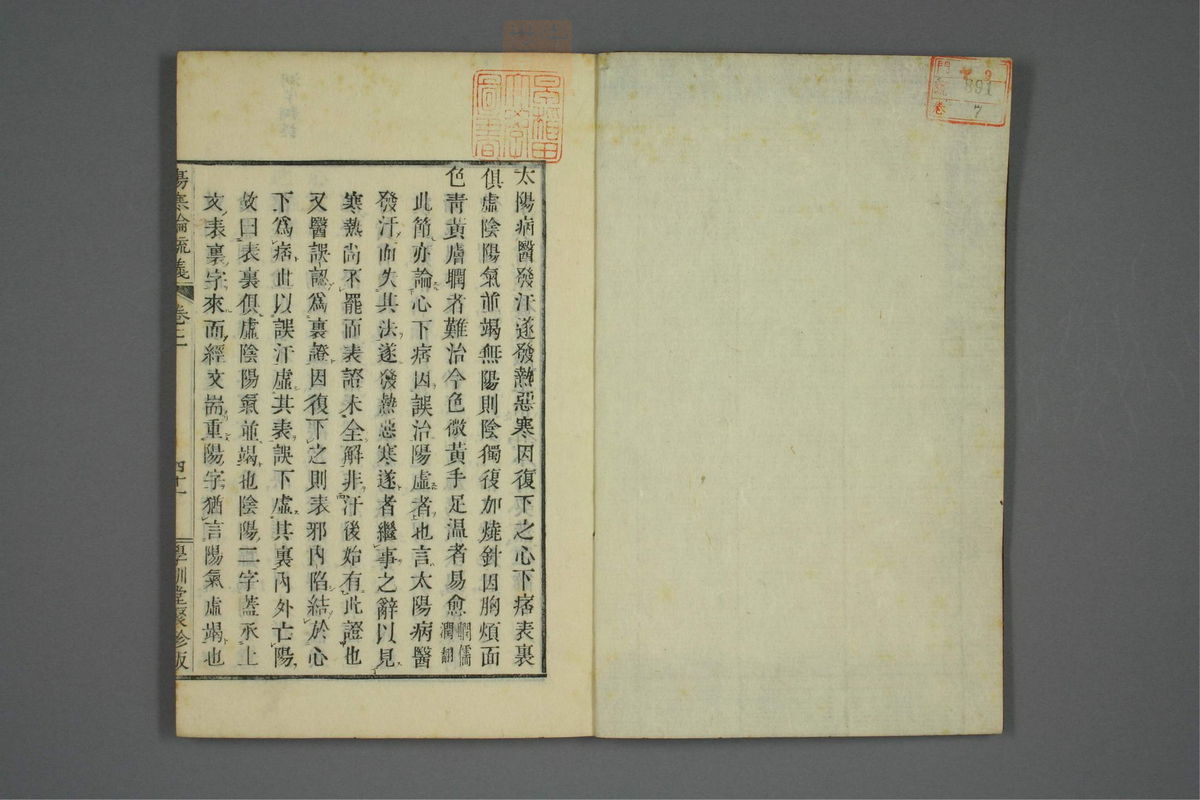 門 ヤ 9
號 891
卷 7
早稲田
大學
圖書
太陽病醫發汗遂發熱惡寒因復下之心下痞表裏
俱虛陰陽氣並竭無陽則陰獨復加燒針因胸煩面
色靑黃膚瞤者難治今色微黃手足溫者易愈瞤儒潤翻
此節亦論心下痞因誤治陽虛者也言太陽病醫
發汗而失其法遂發熱惡寒遂者繼事之辭以見
寒熱尚不罷而表證未全解非汗後始有此證也
又醫誤認爲裏證因復下之則表邪內陷結於心
下爲痞此以誤汗虛其表誤下虛其裏內外亡陽
故曰表裏俱虛陰陽氣並竭也陰陽二字蓋承上
文表裏字來而經文耑重陽字猶言陽氣虛竭也
傷寒論疏義 卷二 四十一 學訓堂聚珍版